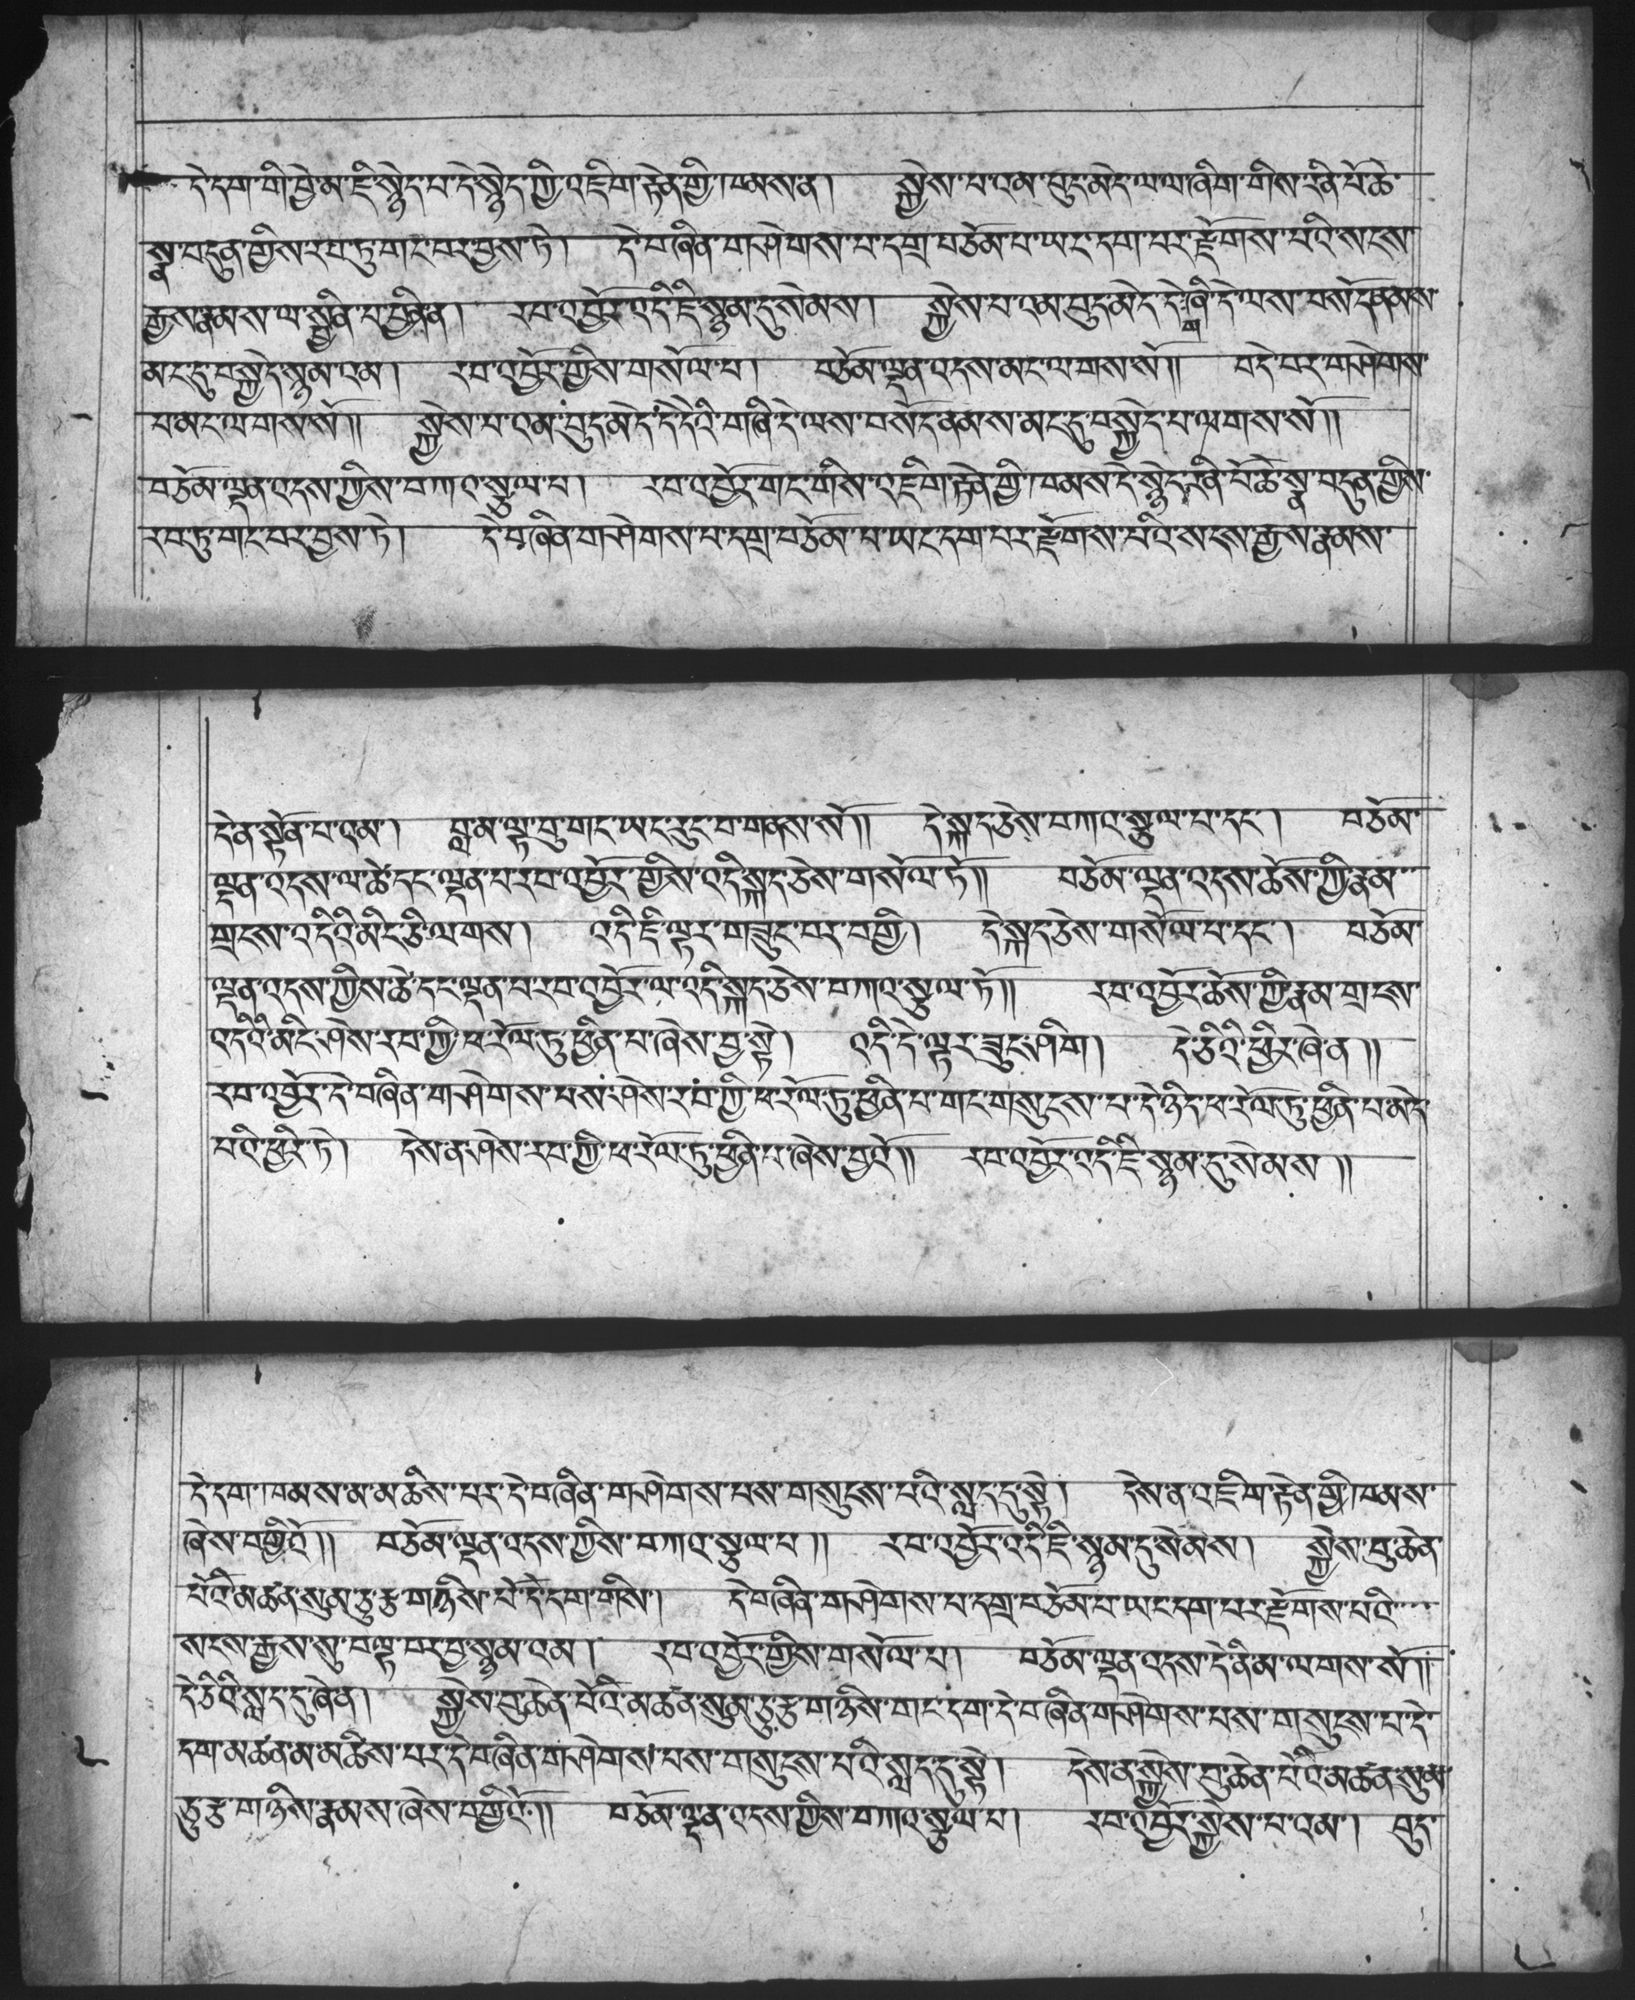 དེ་དག་གི་བྱེ་མ་ཇི་སྙེད་པ་དེ་སྙེད་ཀྱི་འཇིག་རྟེན་གྱི་ཁམས་ན། སྐྱེས་པ་འམ་བུད་མེད་ལ་ལ་ཞིག་གིས་རིན་པོ་ཆེ་
སྣ་བདུན་གྱིས་རབ་ཏུ་གང་བར་བྱས་ཏེ། དེ་བཞིན་གཤེགས་པ་དགྲ་བཅོམ་པ་ཡང་དག་པར་རྫོགས་པའི་སངས་
རྒྱས་རྣམས་ལ་སྦྱིན་པ་བྱིན་ན། རབ་འབྱོར་འདི་ཇི་སྙམ་དུ་སེམས། སྐྱེས་པ་འམ་བུད་མེད་དེ་གཞི་དེ་ལས་བསོད་ནམས་
མང་དུ་བསྐྱེད་སྙམ་འམ། རབ་འབྱོར་གྱིས་གསོལ་པ། བཅོམ་ལྡན་འདས་མང་ལགས་སོ།། བདེ་བར་གཤེགས་
པ་མང་ལགས་སོ།། སྐྱེས་པ་འམ་བུད་མེད་དེ་དེའི་གཞི་དེ་ལས་བསོད་ནམས་མང་དུ་བསྐྱེད་པ་ལགས་སོ།།
བཅོམ་ལྡན་འདས་ཀྱིས་བཀའ་སྩལ་པ། རབ་འབྱོར་གང་གིས་འཇིག་རྟེན་གྱི་ཁམས་དེ་སྙེད་རིན་པོ་ཆེ་སྣ་བདུན་གྱིས་
རབ་ཏུ་གང་བར་བྱས་ཏེ། དེ་བཞིན་གཤེགས་པ་དགྲ་བཅོམ་པ་ཡང་དག་པར་རྫོགས་པའི་སངས་རྒྱས་རྣམས་
དེ་ན་སྟོན་པ་འམ། བླ་མ་ལྟ་བུ་གང་ཡང་རུང་བ་གནས་སོ།། དེ་སྐད་ཅེས་བཀའ་སྩལ་པ་དང་། བཅོམ་
ལྡན་འདས་ལ་ཚེ་དང་ལྡན་པ་རབ་འབྱོར་གྱིས་འདི་སྐད་ཅེས་གསོལ་ཏོ།། བཅོམ་ལྡན་འདས་ཆོས་ཀྱི་རྣམ་
གྲངས་འདིའི་མིང་ཅི་ལགས། འདི་ཇི་ལྟར་གཟུང་བར་བགྱི། དེ་སྐད་ཅེས་གསོལ་པ་དང་། བཅོམ་
ལྡན་འདས་ཀྱིས་ཚེ་དང་ལྡན་པ་རབ་འབྱོར་ལ་འདི་སྐད་ཅེས་བཀའ་སྩལ་ཏོ།། རབ་འབྱོར་ཆོས་ཀྱི་རྣམ་གྲངས་
འདིའི་མིང་ཤེས་རབ་ཀྱི་ཕ་རོལ་ཏུ་ཕྱིན་པ་ཞེས་བྱ་སྟེ། འདི་དེ་ལྟར་ཟུང་ཤིག། དེ་ཅིའི་ཕྱིར་ཞེ་ན།།
རབ་འབྱོར་དེ་བཞིན་གཤེགས་པས་ཤེས་རབ་ཀྱི་ཕ་རོལ་ཏུ་ཕྱིན་པ་གང་གསུངས་པ་དེ་ཉིད་ཕ་རོལ་ཏུ་ཕྱིན་པ་མེད་
པའི་ཕྱིར་ཏེ། དེས་ན་ཤེས་རབ་ཀྱི་ཕ་རོལ་ཏུ་ཕྱིན་པ་ཞེས་བྱའོ།། རབ་འབྱོར་འདི་ཇི་སྙམ་དུ་སེམས།།
དེ་དག་ཁམས་མ་མཆིས་པར་དེ་བཞིན་གཤེགས་པས་གསུངས་པའི་སླད་དུ་སྟེ། དེས་ན་འཇིག་རྟེན་གྱི་ཁམས་
ཞེས་བགྱིའོ།། བཅོམ་ལྡན་འདས་ཀྱིས་བཀའ་སྩལ་པ།། རབ་འབྱོར་འདི་ཇི་སྙམ་དུ་སེམས། སྐྱེས་བུ་ཆེན་
པོའི་མཚན་སུམ་ཅུ་རྩ་གཉིས་པོ་དེ་དག་གིས། དེ་བཞིན་གཤེགས་པ་དགྲ་བཅོམ་པ་ཡང་དག་པར་རྫོགས་པའི་
སངས་རྒྱས་སུ་བལྟ་བར་བྱ་སྙམ་འམ། རབ་འབྱོར་གྱིས་གསོལ་པ། བཅོམ་ལྡན་འདས་དེ་ནི་མ་ལགས་སོ།།
དེ་ཅིའི་སླད་དུ་ཞེ་ན། སྐྱེས་བུ་ཆེན་པོའི་མཚན་སུམ་ཅུ་རྩ་གཉིས་གང་དག་དེ་བཞིན་གཤེགས་པས་གསུངས་པ་དེ་
དག་མཚན་མ་མཆིས་པར་དེ་བཞིན་གཤེགས་པས་གསུངས་པའི་སླད་དུ་སྟེ། དེས་ན་སྐྱེས་བུ་ཆེན་པོའི་མཚན་སུམ་
ཅུ་རྩ་གཉིས་རྣམས་ཞེས་བགྱིའོ།། བཅོམ་ལྡན་འདས་ཀྱིས་བཀའ་སྩལ་པ། རབ་འབྱོར་སྐྱེས་པ་འམ། བུད་